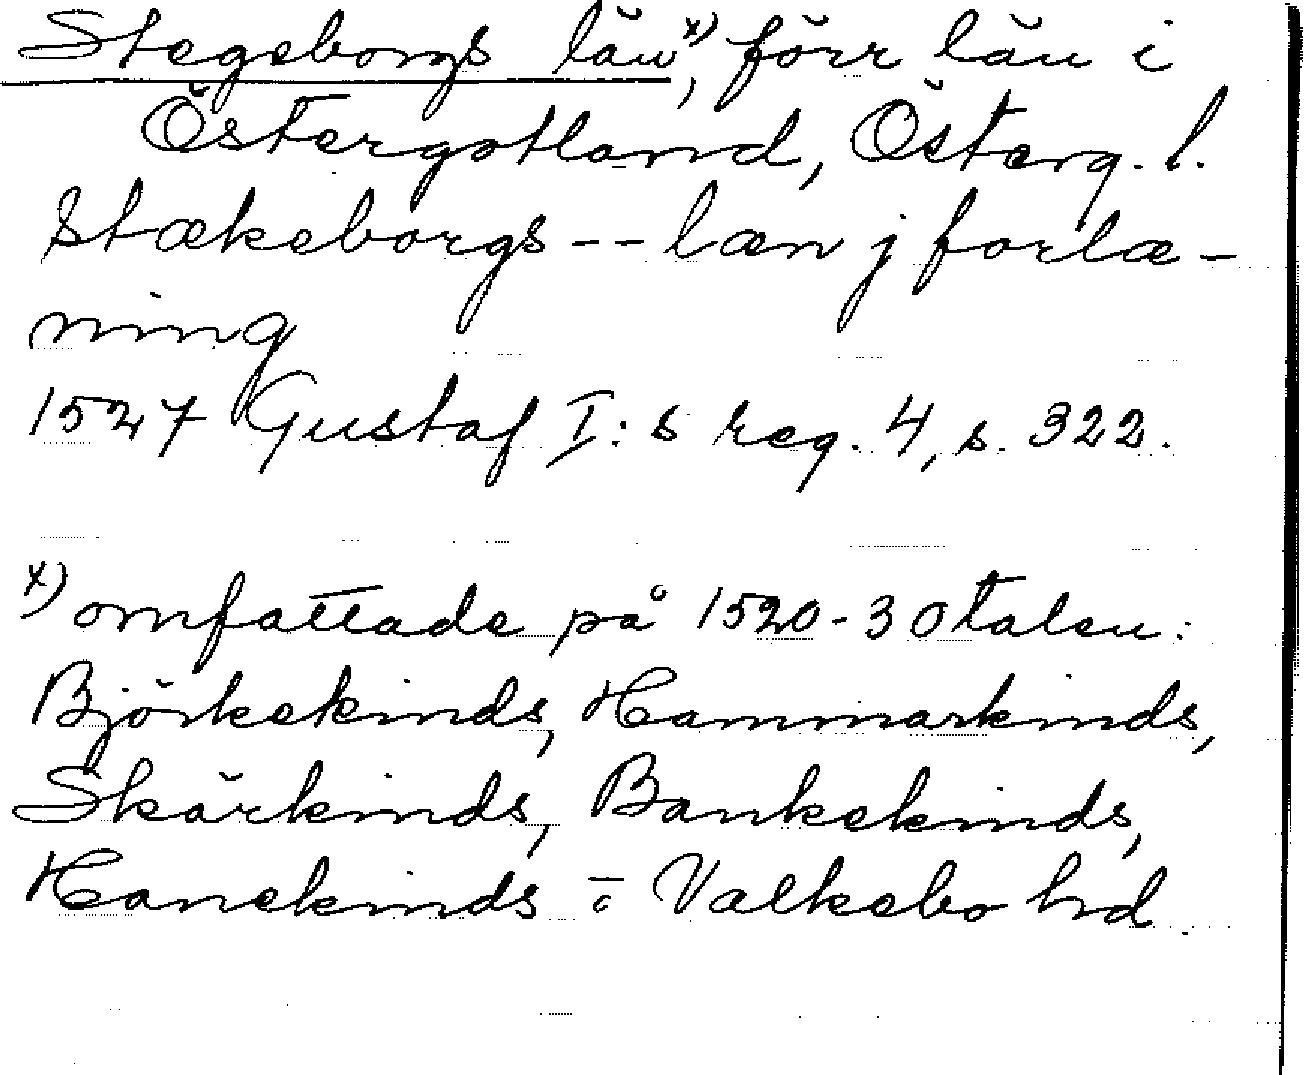 Stegeborgs län x), förr län i
Östergötland, Österg. l.
Stækeborgs -- læn j forlæ-
ning
1527 Gustaf I:s reg. 4, s. 322.
x) omfattade på 1520-30talen:
Björkekinds, Hammarkinds,
Skärkinds, Bankekinds,
Hanekinds o Valkebo hd